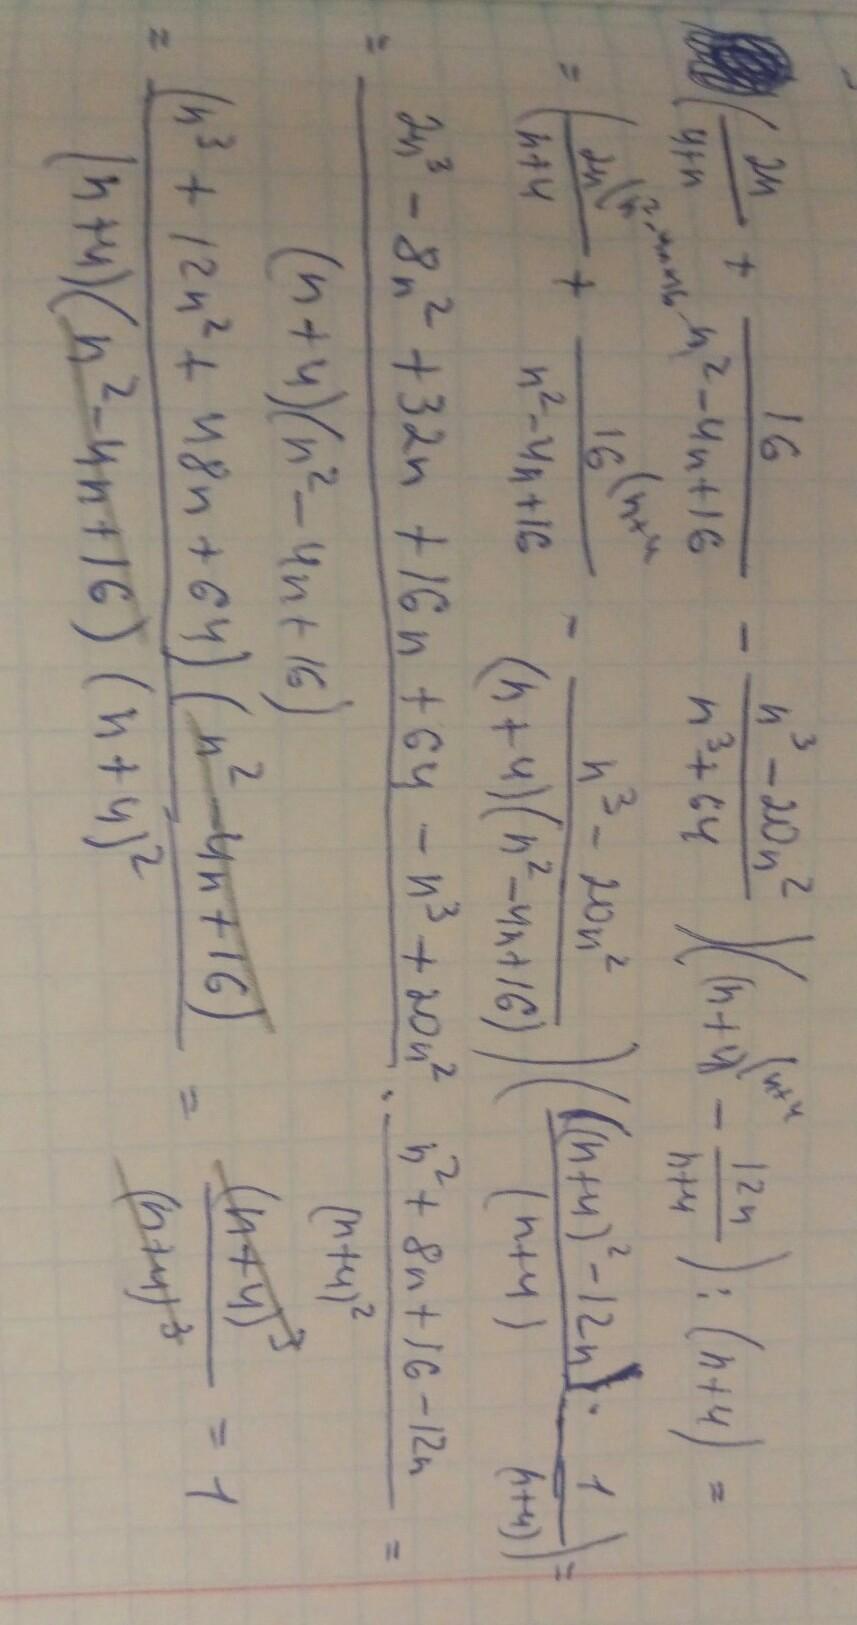 (2n/(4+n) + 16/(n²-4n+16) - (n³-20n²)/(n³+64))((n+4)^(n+4 - 12n/(n+4)) : (n+4) =
= (2n^(n²-4n+16/(n+4) + 16^(n+4/(n²-4n+16) - (n³-20n²)/((n+4)(n²-4n+16)))(((n+4)²-12n)/(n+4) · 1/(n+4)) =
= (2n³-8n²+32n+16n+64-n³+20n²)/((n+4)(n²-4n+16)) · (n²+8n+16-12n)/(n+4)² =
= (n³+12n²+48n+64)(n²-4n+16)/((n+4)(n²-4n+16)(n+4)²) = (n+4)³/(n+4)³ = 1